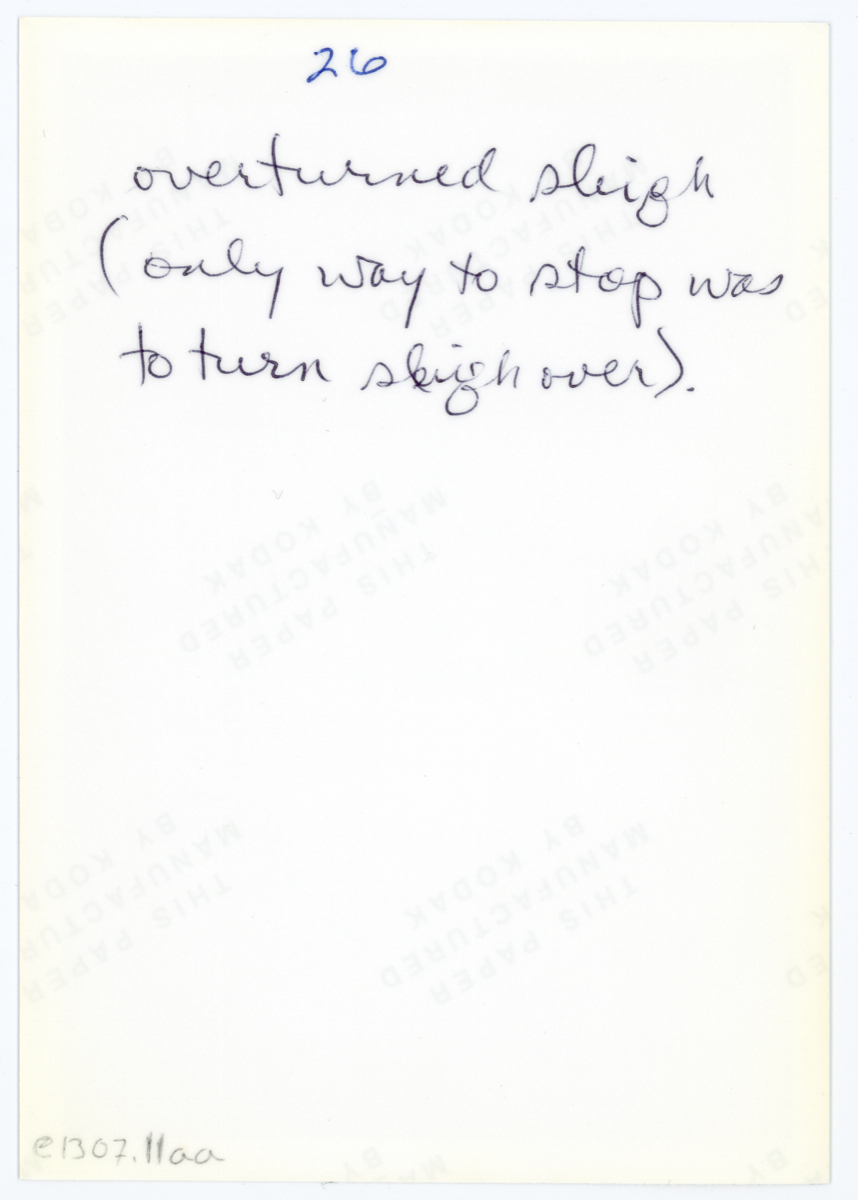 26
overturned sleigh
(only way to stop was
to turn sleigh over).
BY KODA
MANUFACTUR
THIS PAPER
BY KODAK
MANUFACTURED
THIS PAPER
BY KODAK
MANUFACTURED
THIS PAPER
BY KODAK
MANUFACTURED
THIS PAPER
BY KODA
MANUFACTUR
THIS PAPER
BY KODAK
MANUFACTURED
THIS PAPER
e1307.11aa